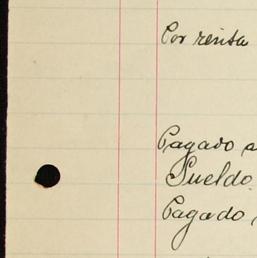 Por renta
Pagado a
Sueldo
Pagado